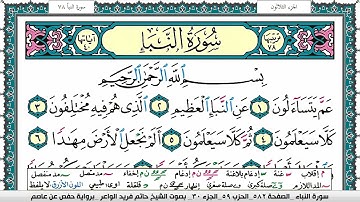 سورة النبأ ٧٨
الجزء الثلاثون
سُورَةُ النَّبَإِ
بِسْمِ اللَّهِ الرَّحْمَٰنِ الرَّحِيمِ
عَمَّ يَتَسَاءَلُونَ ١ عَنِ النَّبَإِ الْعَظِيمِ ٢ الَّذِي هُمْ فِيهِ مُخْتَلِفُونَ ٣
كَلَّا سَيَعْلَمُونَ ٤ ثُمَّ كَلَّا سَيَعْلَمُونَ ٥ أَلَمْ نَجْعَلِ الْأَرْضَ مِهَادًا ٦
سورة النباء . الصفحة ٥٨٢ الجزء ٥٩ . الجزء ٣٠ . بصوت الشيخ حاتم فريد الواعر . برواية حفص عن عاصم